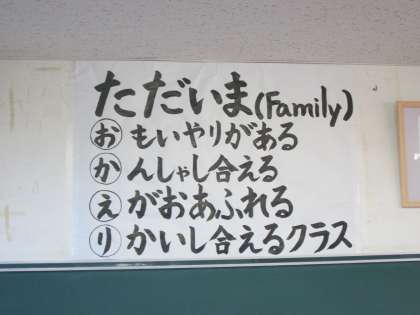 ただいま(Family)
おもいやりがある
かんしゃし合える
えがおあふれる
りかいし合えるクラス